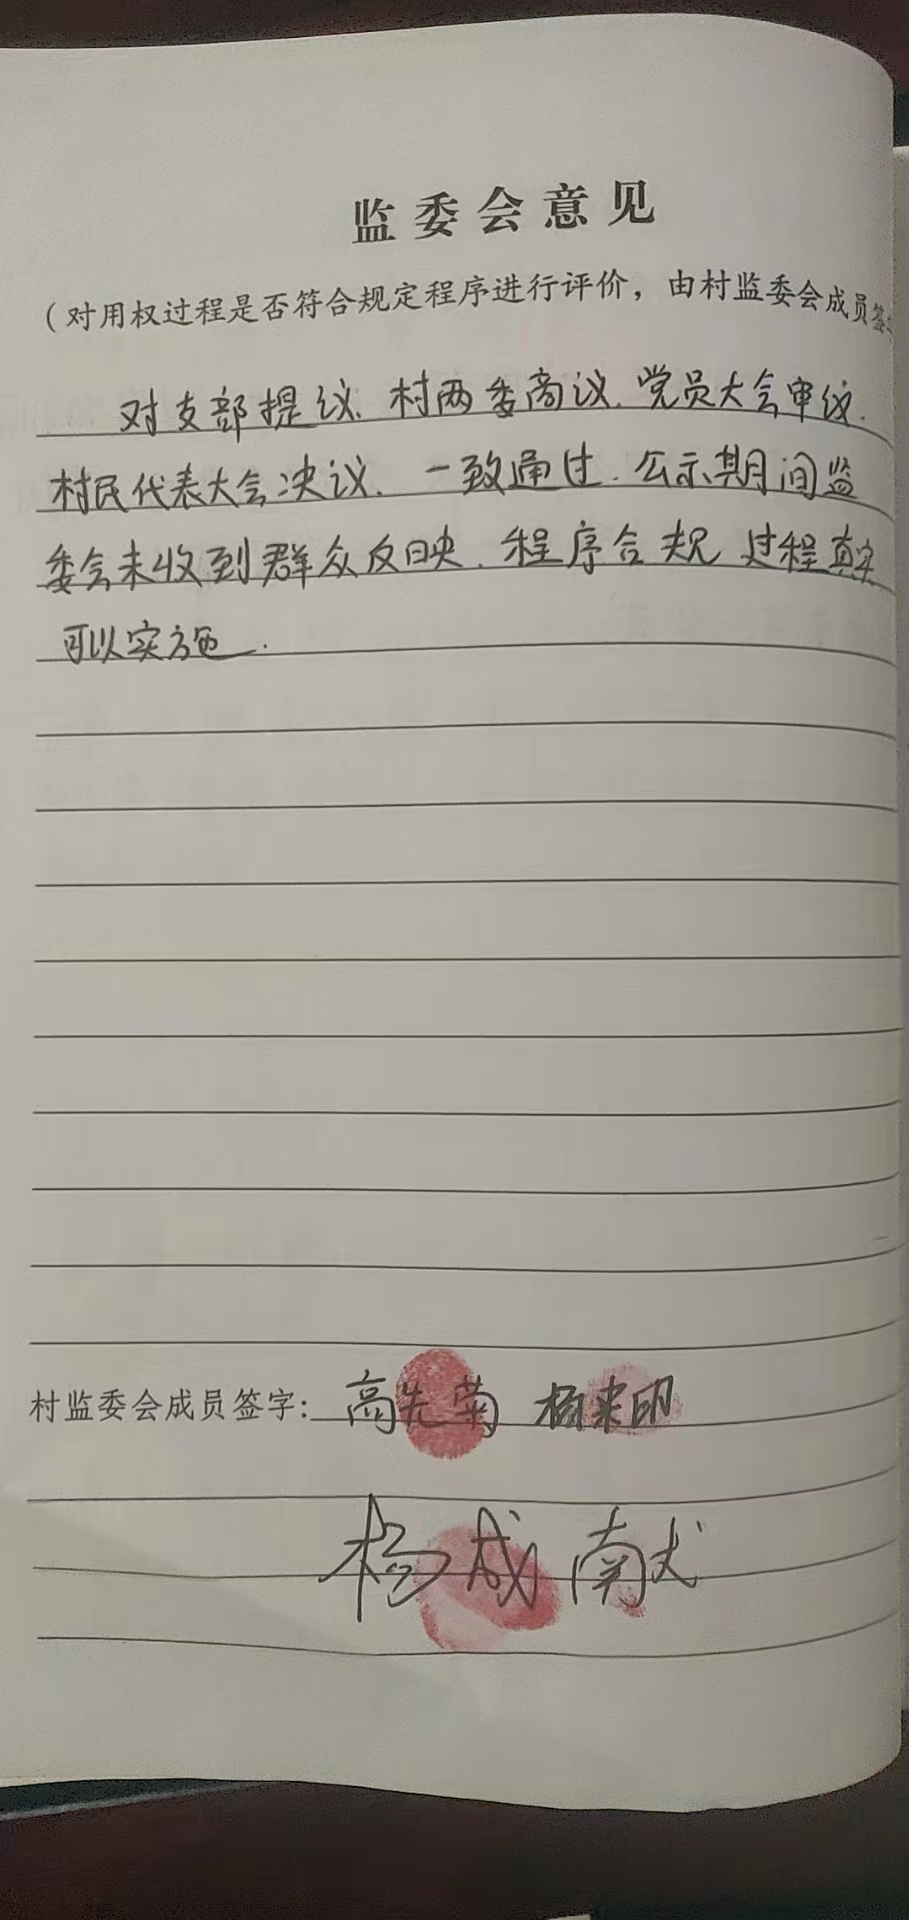 监委会意见
（对用权过程是否符合规定程序进行评价，由村监委会成员签
对支部提议、村两委商议、党员大会审议、
村民代表大会决议、一致通过、公示期间监
委会未收到群众反映、程序合规 过程真实
可以实施.
村监委会成员签字: 高先菊 杨来印
杨成 南